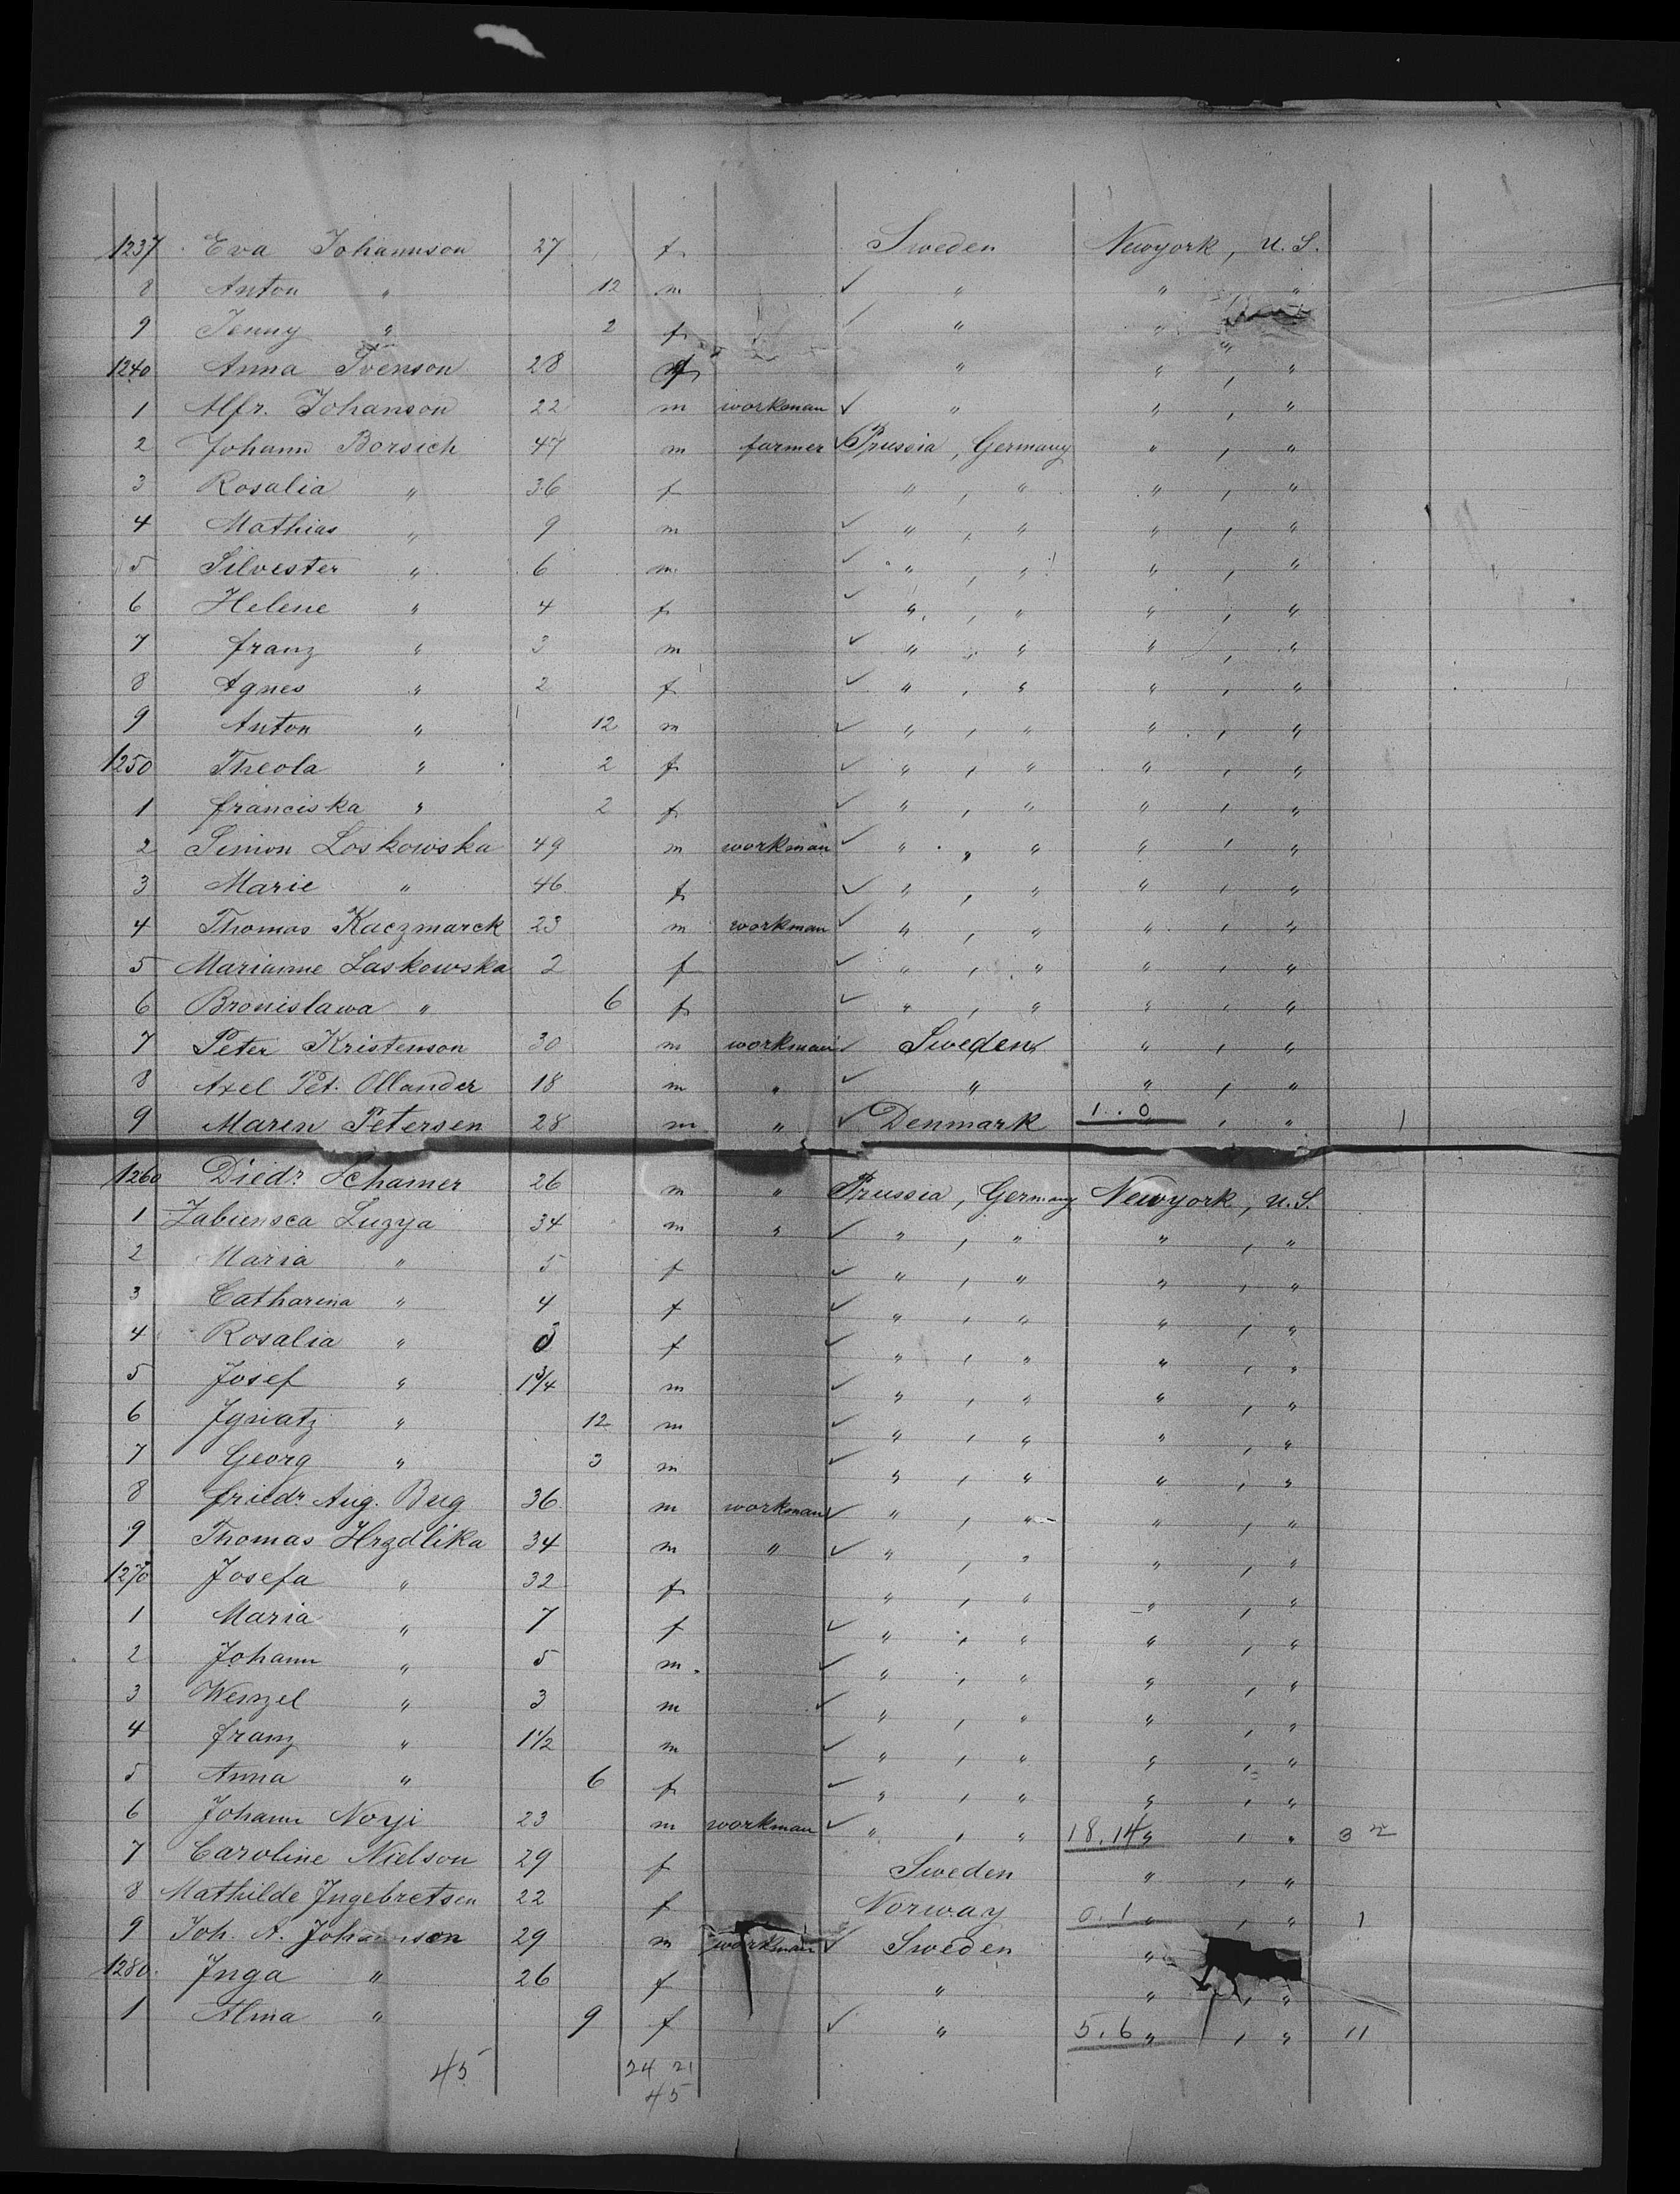 1237 Eva Johannson 27 f Sweden Newyork, U.S.
8 Anton " 12 m ✓ " " "
9 Jenny " 2 f ✓ " " , "
1240 Anna Svenson 28 f " " , "
1 Alfr. Johanson 22 m workman ✓ " " , "
2 Johann Borsich 47 m farmer ✓ Prussia, Germany " , "
3 Rosalia " 36 f " , " " , "
4 Mathias " 9 m ✓ " , " " , "
5 Silvester " 6 m ✓ " , " " , "
6 Helene " 4 f ✓ " , " " , "
7 franz " 3 m ✓ " , " " , "
8 Agnes " 2 f ✓ " , " " , "
9 Anton " 12 m ✓ " , " " , "
1250 Theola " 2 f ✓ " , " " , "
1 franciska " 2 f ✓ " , " " , "
2 Simon Loskowska 49 m workman ✓ " , " " , "
3 Marie " 46 f ✓ " , " " , "
4 Thomas Kaczmarck 23 m workman ✓ " , " " , "
5 Marianne Laskowska 2 f ✓ " , " " , "
6 Bronislawa " 6 f ✓ " , " " , "
7 Peter Kristenson 30 m workman ✓ Sweden " , "
8 Axel Pet. Ollander 18 m " ✓ " " , "
9 Maren Petersen 28 m " ✓ Denmark 1.0 " , " 1
1260 Diedr. Schamer 26 m " Prussia, Germany Newyork, U.S.
1 Zabiensca Luzya 34 m " ✓ " , " " , "
2 Maria " 5 f ✓ " , " " , "
3 Catharina " 4 f ✓ " , " " , "
4 Rosalia " 3 f ✓ " , " " , "
5 Josef " 1 3/4 m ✓ " , " " , "
6 Ignatz " 12 m ✓ " , " " , "
7 Georg " 3 m ✓ " , " " , "
8 friedr. Aug. Bug 36 m workman ✓ " , " " , "
9 Thomas Hrzdlika 34 m " ✓ " , " " , "
1270 Josefa " 32 f " , " " , "
1 Maria " 7 f ✓ " , " " , "
2 Johann " 5 m ✓ " , " " , "
3 Wenzel " 3 m ✓ " , " " , "
4 franz " 1 1/2 m ✓ " , " " , "
5 Anna " 6 f ✓ " , " " , "
6 Johann Noyi 23 m workman ✓ " , " 18.14 " , " 32
7 Caroline Nielson 29 f Sweden " , "
8 Mathilde Ingebretsen 22 f Norway 0.1 " , " 1
9 Joh. A. Johannson 29 m workman ✓ Sweden "
1280 Inga " 26 f " " , "
1 Alma " 9 f ✓ " 5.6 " , " 11
45 24 21
45